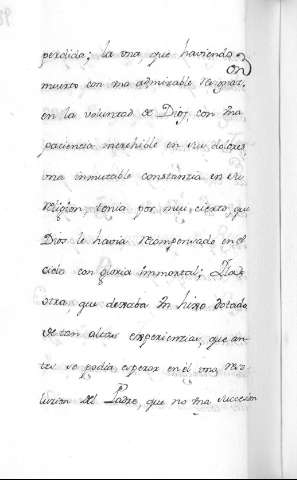 perdido; la una, que haviendo
muerto con una admirable Resignat.on
en la voluntad de Dios, con una
paciencia increhible en sus dolores,
una inmutable constanzia en su
religion, tenia por muy cierto, que
Dios le havia recompensado en el
cielo con gloria immortal; La
otra, que dexaba un hixo dotado
de tan altas experienzias, que an-
tes se podia esperar en él una
del Padre, que no una succession